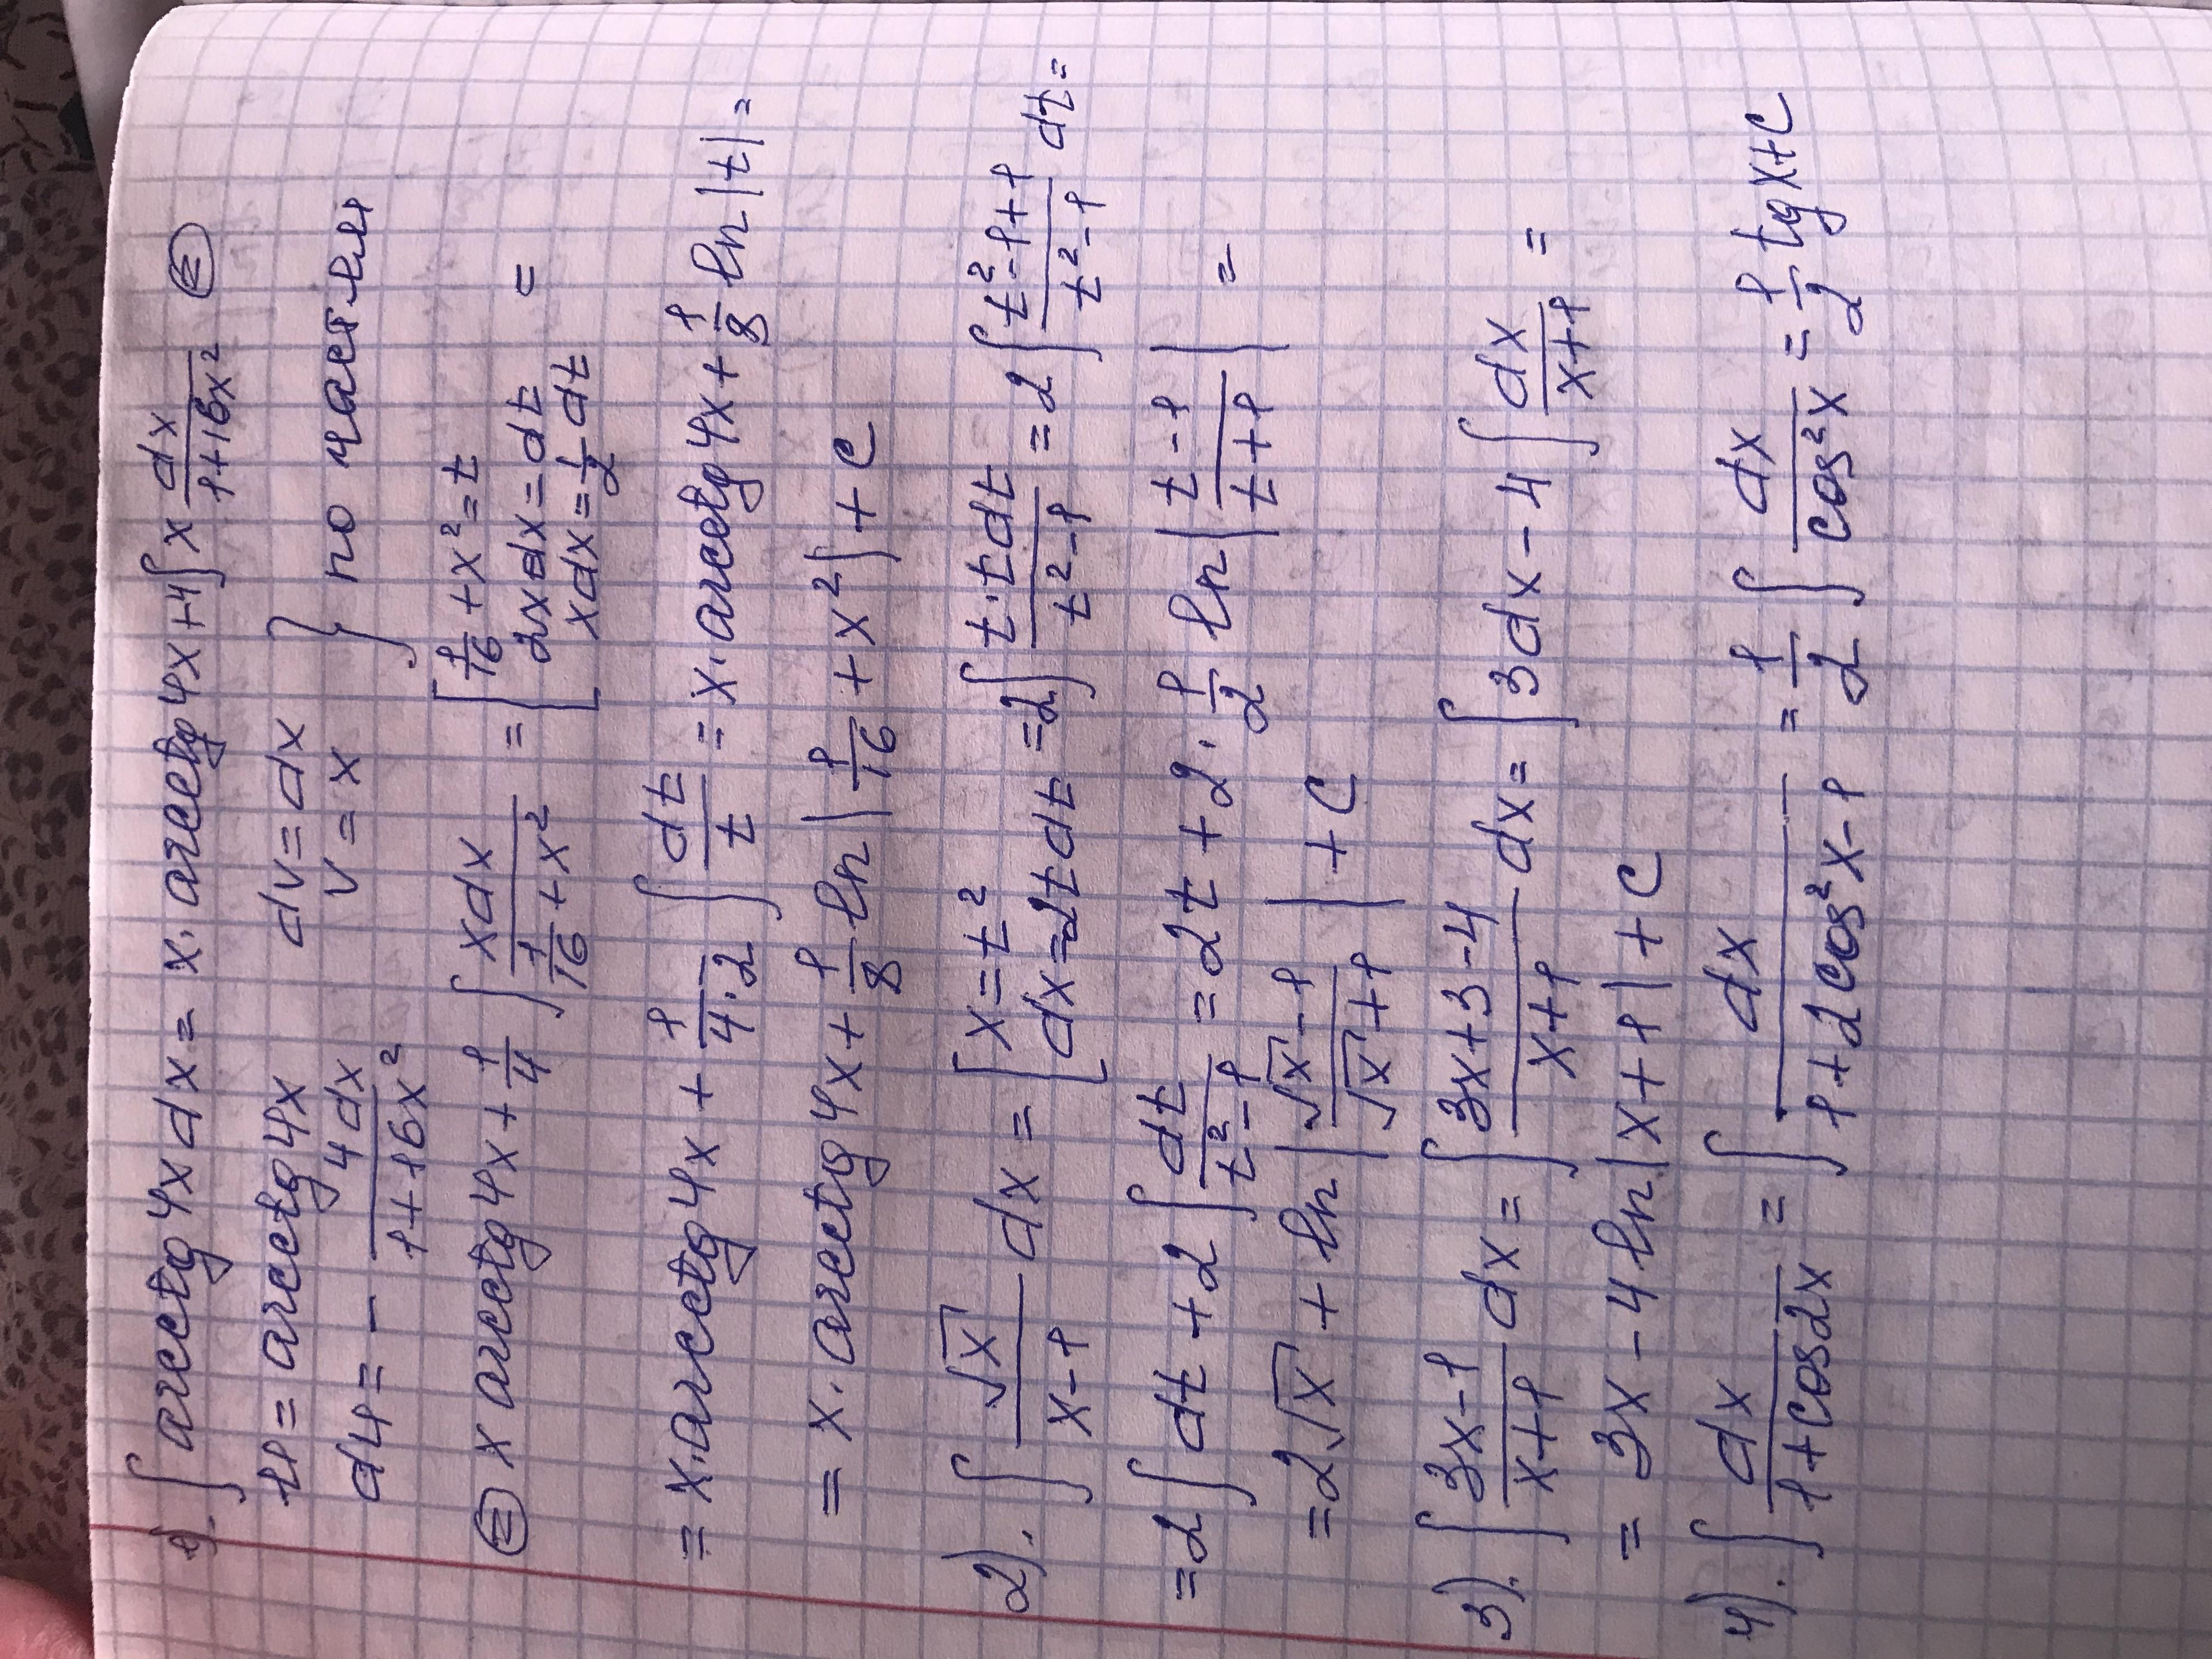 1). ∫ arcctg 4x dx = x·arcctg 4x + 4∫ x dx/(1+16x²) ⊜
u = arcctg 4x   dv = dx
du = − 4dx/(1+16x²)   v = x } по частям
⊜ x arcctg 4x + 1/4 ∫ xdx/(1/16 + x²) = [1/16 + x² = t   2xdx = dt   xdx = 1/2 dt =
= x·arcctg 4x + 1/(4·2) ∫ dt/t = x·arcctg 4x + 1/8 ln|t| =
= x·arcctg 4x + 1/8 ln|1/16 + x²| + C
2). ∫ √x/(x−1) dx = [x = t²   dx = 2tdt = 2∫ t·tdt/(t²−1) = 2∫ (t²−1+1)/(t²−1) dt =
= 2∫ dt + 2∫ dt/(t²−1) = 2t + 2·1/2 ln|(t−1)/(t+1)| =
= 2√x + ln|(√x−1)/(√x+1)| + C
3). ∫ (3x−1)/(x+1) dx = ∫ (3x+3−4)/(x+1) dx = ∫ 3dx − 4∫ dx/(x+1) =
= 3x − 4 ln|x+1| + C
4). ∫ dx/(1+cos2x) = ∫ dx/(1+2cos²x−1) = 1/2 ∫ dx/cos²x = 1/2 tg x + C